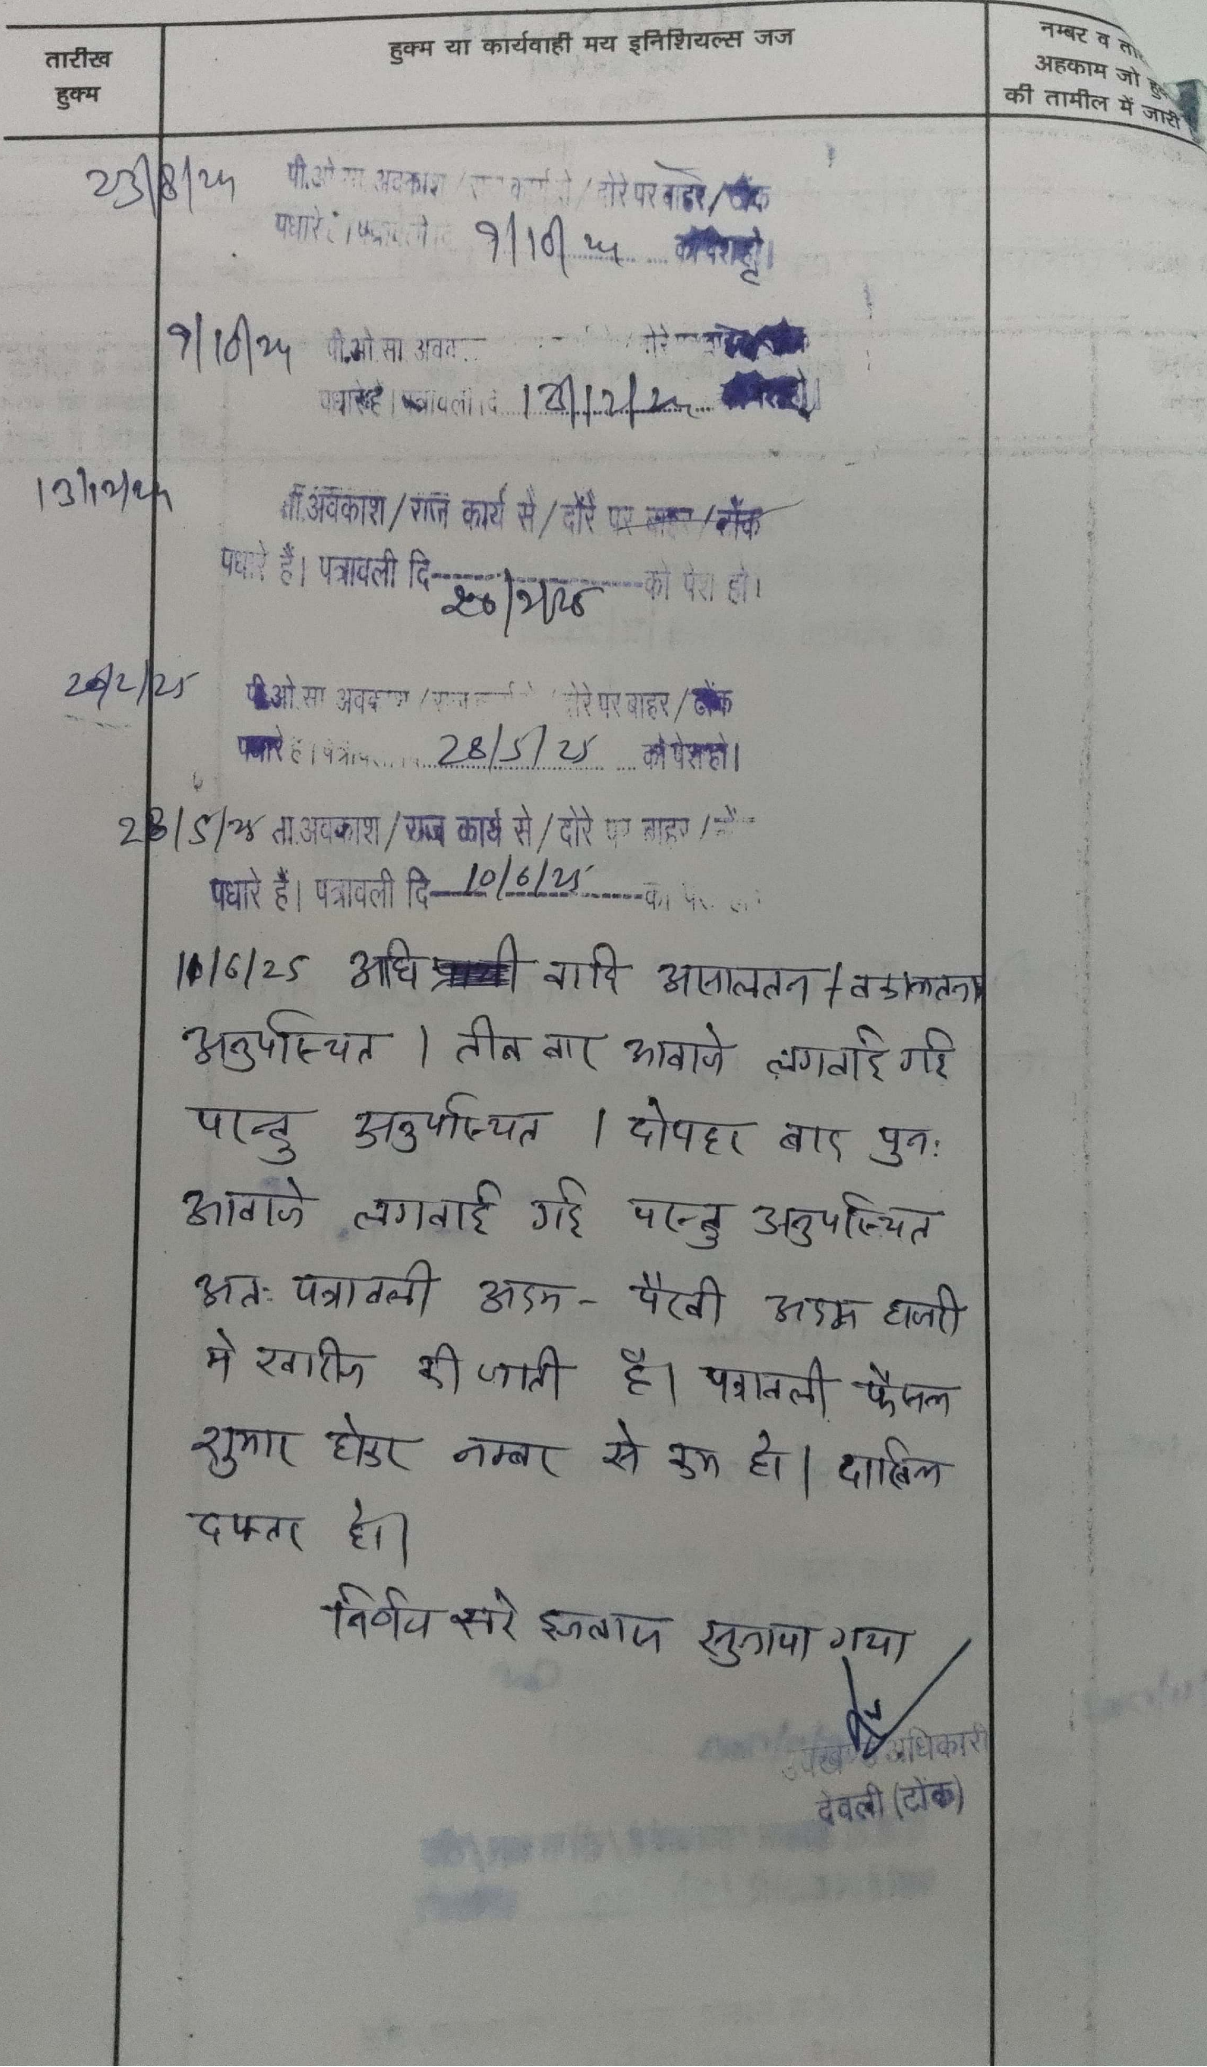 तारीख
हुक्म
हुक्म या कार्यवाही मय इनिशियल्स जज
नम्बर व
अहकाम जो
की तामील में जारी
23/8/24 पी.ओ सा अवकाश / राज कार्य से / दोरे पर बाहर / टोंक
पधारे हैं। पत्रावली 9/10/24 को पेश हो।
9/10/24 पी.ओ.सा अवका दोरे पर
पधारे है। पत्रावली दि 13/12/24
13/12/24 ता.अवकाश / राज कार्य से / दौरे पर बाहर / टोंक
पधारे हैं। पत्रावली दि 20/2/25 को पेश हो।
20/2/25 पी.ओ.सा अवकाश / राज कार्य से / दोरे पर बाहर / टोंक
पधारे है। पत्राव 28/5/25 को पेश हो।
28/5/25 ता.अवकाश / राज कार्य से / दोरे पर बाहर / टोंक
पधारे हैं। पत्रावली दि 10/6/25 को पेश
10/6/25 अधि वादि असालतन / वकालतन
अनुपस्थित । तीन बार आवाजे लगवाई गई
परन्तु अनुपस्थित । दोपहर बाद पुन:
आवाजे लगवाई गई परन्तु अनुपस्थित
अत: पत्रावली अदम - पैरवी अदम हाजरी
मे खारीज की जाती है। पत्रावली फैसल
शुमार होकर नम्बर से कम हो। दाखिल
दफ्तर हो।
निर्णय सरे इजलास सुनाया गया
उपखण्ड अधिकारी
देवली (टोंक)